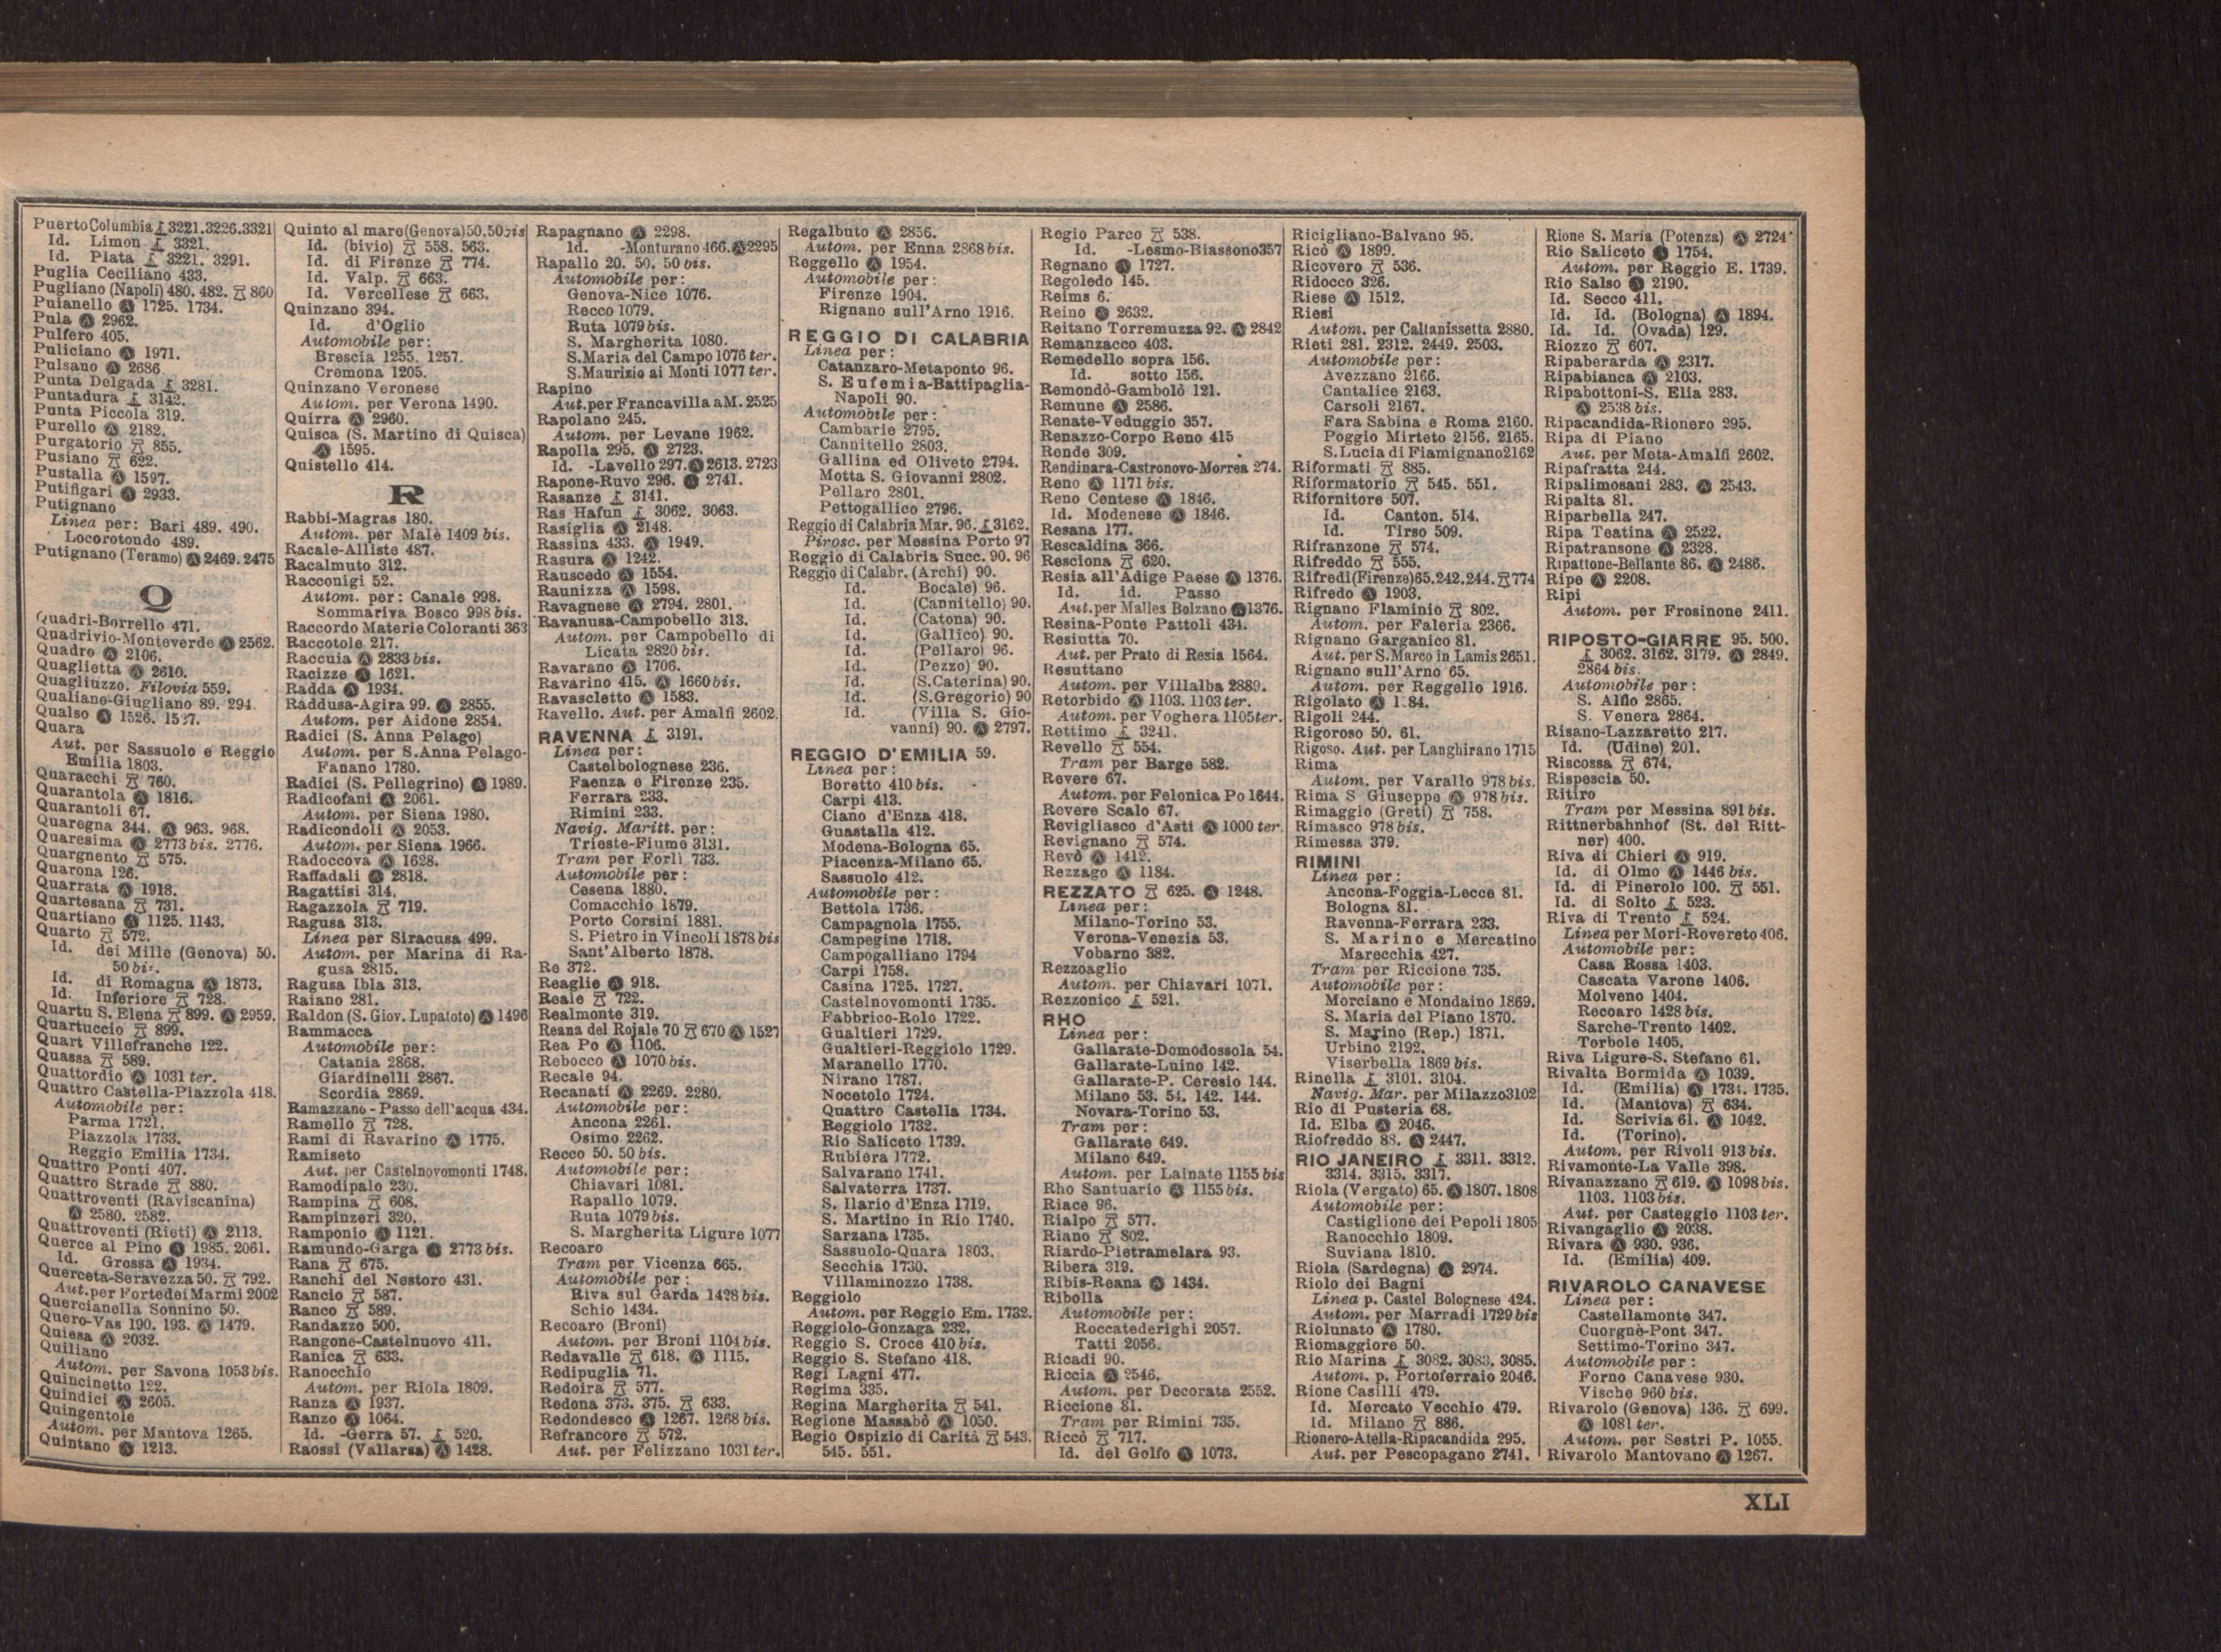 Puerto Columbia 3221. 3226. 3321
Id. Limon 3321.
Id. Plata 3221. 3291.
Puglia Ceciliano 433.
Pugliano (Napoli) 480. 482. 860
Puianello Ⓐ 1725. 1734.
Pula Ⓐ 2962.
Pulfero 405.
Puliciano Ⓐ 1971.
Pulsano Ⓐ 2686
Punta Delgada 3281.
Puntadura 3142.
Punta Piccola 319.
Purello Ⓐ 2182.
Purgatorio 855.
Pusiano 622.
Pustalla Ⓐ 1597.
Putifigari Ⓐ 2933.
Putignano
Linea per: Bari 489. 490.
Locorotondo 489.
Putignano (Teramo) Ⓐ 2469. 2475
Q
Quadri-Borrello 471.
Quadrivio-Monteverde Ⓐ 2562.
Quadro Ⓐ 2106.
Quaglietta Ⓐ 2610.
Quagliuzzo. Filovia 559.
Qualiano-Giugliano 89. 294.
Qualso Ⓐ 1526. 1527.
Quara
Aut. per Sassuolo e Reggio
Emilia 1803.
Quaracchi 760.
Quarantola Ⓐ 1816.
Quarantoli 67.
Quaregna 344. Ⓐ 963. 968.
Quaresima Ⓐ 2773 bis. 2776.
Quargnento 575.
Quarona 126.
Quarrata Ⓐ 1918.
Quartesana 731.
Quartiano Ⓐ 1125. 1143.
Quarto 572.
Id. dei Mille (Genova) 50.
50 bis.
Id. di Romagna Ⓐ 1873.
Id. Inferiore 728.
Quartu S. Elena 899. Ⓐ 2959.
Quartuccio 899.
Quart Villefranche 122.
Quassa 589.
Quattordio Ⓐ 1031 ter.
Quattro Castella-Piazzola 418.
Automobile per:
Parma 1721.
Piazzola 1733.
Reggio Emilia 1734.
Quattro Ponti 407.
Quattro Strade 880.
Quattroventi (Raviscanina)
Ⓐ 2580. 2582.
Quattroventi (Rieti) Ⓐ 2113.
Querce al Pino Ⓐ 1985. 2061.
Id. Grossa Ⓐ 1934.
Querceta-Seravezza 50. 792.
Aut. per Forte dei Marmi 2002
Quercianella Sonnino 50.
Quero-Vas 190. 193. Ⓐ 1479.
Quiesa Ⓐ 2032.
Quiliano
Autom. per Savona 1053 bis.
Quincinetto 122.
Quindici Ⓐ 2605.
Quingentole
Autom. per Mantova 1265.
Quintano Ⓐ 1213.
Quinto al mare (Genova) 50. 50 bis
Id. (bivio) 558. 563.
Id. di Firenze 774.
Id. Valp. 663.
Id. Vercellese 663.
Quinzano 394.
Id. d'Oglio
Automobile per:
Brescia 1255. 1257.
Cremona 1205.
Quinzano Veronese
Autom. per Verona 1490.
Quirra Ⓐ 2960.
Quisca (S. Martino di Quisca)
Ⓐ 1595.
Quistello 414.
R
Rabbi-Magras 180.
Autom. per Malè 1409 bis.
Racale-Alliste 487.
Racalmuto 312.
Racconigi 52.
Autom. per: Canale 998.
Sommariva Bosco 998 bis.
Raccordo Materie Coloranti 363
Raccotole 217.
Raccuia Ⓐ 2833 bis.
Racizze Ⓐ 1621.
Radda Ⓐ 1934.
Raddusa-Agira 99. Ⓐ 2855.
Autom. per Aidone 2854.
Radici (S. Anna Pelago)
Autom. per S. Anna Pelago-
Fanano 1780.
Radici (S. Pellegrino) Ⓐ 1989.
Radicofani Ⓐ 2061.
Autom. per Siena 1980.
Radicondoli Ⓐ 2053.
Autom. per Siena 1966.
Radoccova Ⓐ 1628.
Raffadali Ⓐ 2818.
Ragattisi 314.
Ragazzola 719.
Ragusa 313.
Linea per Siracusa 499.
Autom. per Marina di Ra-
gusa 2815.
Ragusa Ibla 313.
Raiano 281.
Raldon (S. Giov. Lupatoto) Ⓐ 1496
Rammacca
Automobile per:
Catania 2868.
Giardinelli 2867.
Scordia 2869.
Ramazzano - Passo dell'acqua 434.
Ramello 728.
Rami di Ravarino Ⓐ 1775.
Ramiseto
Aut. per Castelnovomonti 1748.
Ramodipalo 230.
Rampina 608.
Rampinzeri 320.
Ramponio Ⓐ 1121.
Ramundo-Garga Ⓐ 2773 bis.
Rana 675.
Ranchi del Nestoro 431.
Rancio 587.
Ranco 589.
Randazzo 500.
Rangone-Castelnuovo 411.
Ranica 633.
Ranocchio
Autom. per Riola 1809.
Ranza Ⓐ 1937.
Ranzo Ⓐ 1064.
Id. -Gerra 57. 520.
Raossi (Vallarsa) Ⓐ 1428.
Rapagnano Ⓐ 2298.
Id. -Monturano 466. Ⓐ 2295
Rapallo 20. 50. 50 bis.
Automobile per:
Genova-Nice 1076.
Recco 1079.
Ruta 1079 bis.
S. Margherita 1080.
S. Maria del Campo 1076 ter.
S. Maurizio ai Monti 1077 ter.
Rapino
Aut. per Francavilla a M. 2525
Rapolano 245.
Autom. per Levane 1962.
Rapolla 295. Ⓐ 2723.
Id. -Lavello 297. Ⓐ 2613. 2723
Rapone-Ruvo 296. Ⓐ 2741.
Rasanze 3141.
Ras Hafun 3062. 3063.
Rasiglia Ⓐ 2148.
Rassina 433. Ⓐ 1949.
Rasura Ⓐ 1242.
Rauscedo Ⓐ 1554.
Raunizza Ⓐ 1598.
Ravagnese Ⓐ 2794. 2801.
Ravanusa-Campobello 313.
Autom. per Campobello di
Licata 2820 bis.
Ravarano Ⓐ 1706.
Ravarino 415. Ⓐ 1660 bis.
Ravascletto Ⓐ 1583.
Ravello. Aut. per Amalfi 2602.
RAVENNA 3191.
Linea per:
Castelbolognese 236.
Faenza e Firenze 235.
Ferrara 233.
Rimini 233.
Navig. Maritt. per:
Trieste-Fiume 3131.
Tram per Forlì 733.
Automobile per:
Cesena 1880.
Comacchio 1879.
Porto Corsini 1881.
S. Pietro in Vincoli 1878 bis
Sant'Alberto 1878.
Re 372.
Reaglie Ⓐ 918.
Reale 722.
Realmonte 319.
Reana del Rojale 70 670 Ⓐ 1527
Rea Po Ⓐ 1106.
Rebocco Ⓐ 1070 bis.
Recale 94.
Recanati Ⓐ 2269. 2280.
Automobile per:
Ancona 2261.
Osimo 2262.
Recco 50. 50 bis.
Automobile per:
Chiavari 1081.
Rapallo 1079.
Ruta 1079 bis.
S. Margherita Ligure 1077
Recoaro
Tram per Vicenza 665.
Automobile per:
Riva sul Garda 1428 bis.
Schio 1434.
Recoaro (Broni)
Autom. per Broni 1104 bis.
Redavalle 618. Ⓐ 1115.
Redipuglia 71.
Redoira 577.
Redona 373. 375. 633.
Redondesco Ⓐ 1267. 1268 bis.
Refrancore 572.
Aut. per Felizzano 1031 ter.
Regalbuto Ⓐ 2856.
Autom. per Enna 2868 bis.
Reggello Ⓐ 1954.
Automobile per:
Firenze 1904.
Rignano sull'Arno 1916.
REGGIO DI CALABRIA
Linea per:
Catanzaro-Metaponto 96.
S. Eufemia-Battipaglia-
Napoli 90.
Automobile per:
Cambarie 2795.
Cannitello 2803.
Gallina ed Oliveto 2794.
Motta S. Giovanni 2802.
Pellaro 2801.
Pettogallico 2796.
Reggio di Calabria Mar. 96. 3162.
Pirosc. per Messina Porto 97
Reggio di Calabria Succ. 90. 96
Reggio di Calabr. (Archi) 90.
Id. Bocale) 96.
Id. (Cannitello) 90.
Id. (Catona) 90.
Id. (Gallico) 90.
Id. (Pellaro) 96.
Id. (Pezzo) 90.
Id. (S. Caterina) 90.
Id. (S. Gregorio) 90
Id. (Villa S. Gio-
vanni) 90. Ⓐ 2797.
REGGIO D'EMILIA 59.
Linea per:
Boretto 410 bis.
Carpi 413.
Ciano d'Enza 418.
Guastalla 412.
Modena-Bologna 65.
Piacenza-Milano 65.
Sassuolo 412.
Automobile per:
Bettola 1736.
Campagnola 1755.
Campegine 1718.
Campogalliano 1794
Carpi 1758.
Casina 1725. 1727.
Castelnovomonti 1735.
Fabbrico-Rolo 1722.
Gualtieri 1729.
Gualtieri-Reggiolo 1729.
Maranello 1770.
Nirano 1787.
Nocetolo 1724.
Quattro Castella 1734.
Reggiolo 1732.
Rio Saliceto 1739.
Rubiera 1772.
Salvarano 1741.
Salvaterra 1737.
S. Ilario d'Enza 1719.
S. Martino in Rio 1740.
Sarzana 1735.
Sassuolo-Quara 1803.
Secchia 1730.
Villaminozzo 1738.
Reggiolo
Autom. per Reggio Em. 1732.
Reggiolo-Gonzaga 232.
Reggio S. Croce 410 bis.
Reggio S. Stefano 418.
Regi Lagni 477.
Regima 335.
Regina Margherita 541.
Regione Massabò Ⓐ 1050.
Regio Ospizio di Carità 543.
545. 551.
Regio Parco 538.
Id. -Lesmo-Biassono 357
Regnano Ⓐ 1727.
Regoledo 145.
Reims 6.
Reino Ⓐ 2632.
Reitano Torremuzza 92. Ⓐ 2842
Remanzacco 403.
Remedello sopra 156.
Id. sotto 156.
Remondò-Gambolò 121.
Remune Ⓐ 2586.
Renate-Veduggio 357.
Renazzo-Corpo Reno 415
Rende 309.
Rendinara-Castronovo-Morrea 274.
Reno Ⓐ 1171 bis.
Reno Centese Ⓐ 1846.
Id. Modenese Ⓐ 1846.
Resana 177.
Rescaldina 366.
Resciona 620.
Resia all'Adige Paese Ⓐ 1376.
Id. id. Passo
Aut. per Malles Bolzano Ⓐ 1376.
Resina-Ponte Pattoli 434.
Resiutta 70.
Aut. per Prato di Resia 1564.
Resuttano
Autom. per Villalba 2889.
Retorbido Ⓐ 1103. 1103 ter.
Autom. per Voghera 1105 ter.
Rettimo 3241.
Revello 554.
Tram per Barge 582.
Revere 67.
Autom. per Felonica Po 1644.
Revere Scalo 67.
Revigliasco d'Asti Ⓐ 1000 ter
Revignano 574.
Revò Ⓐ 1412.
Rezzago Ⓐ 1184.
REZZATO 625. Ⓐ 1248.
Linea per:
Milano-Torino 53.
Verona-Venezia 53.
Vobarno 382.
Rezzoaglio
Autom. per Chiavari 1071.
Rezzonico 521.
RHO
Linea per:
Gallarate-Domodossola 54.
Gallarate-Luino 142.
Gallarate-P. Ceresio 144.
Milano 53. 54. 142. 144.
Novara-Torino 53.
Tram per:
Gallarate 649.
Milano 649.
Autom. per Lainate 1155 bis
Rho Santuario Ⓐ 1155 bis.
Riace 96.
Rialpo 577.
Riano 802.
Riardo-Pietramelara 93.
Ribera 319.
Ribis-Reana Ⓐ 1434.
Ribolla
Automobile per:
Roccatederighi 2057.
Tatti 2056.
Ricadi 90.
Riccia Ⓐ 2546.
Autom. per Decorata 2552.
Riccione 81.
Tram per Rimini 735.
Riccò 717.
Id. del Golfo Ⓐ 1073.
Ricigliano-Balvano 95.
Ricò Ⓐ 1899.
Ricovero 536.
Ridocco 326.
Riese Ⓐ 1512.
Riesi
Autom. per Caltanissetta 2880.
Rieti 281. 2312. 2449. 2503.
Automobile per:
Avezzano 2166.
Cantalice 2163.
Carsoli 2167.
Fara Sabina e Roma 2160.
Poggio Mirteto 2156. 2165.
S. Lucia di Fiamignano 2162
Riformati 885.
Riformatorio 545. 551.
Rifornitore 507.
Id. Canton. 514.
Id. Tirso 509.
Rifranzone 574.
Rifreddo 555.
Rifredi (Firenze) 65. 242. 244. 774
Rifredo Ⓐ 1903.
Rignano Flaminio 802.
Autom. per Faleria 2366.
Rignano Garganico 81.
Aut. per S. Marco in Lamis 2651.
Rignano sull'Arno 65.
Autom. per Reggello 1916.
Rigolato Ⓐ
Rigoli 244.
Rigoroso 50. 61.
Rigoso. Aut. per Langhirano 1715
Rima
Autom. per Varallo 978 bis.
Rima S Giuseppe Ⓐ 978 bis.
Rimaggio (Greti) 758.
Rimasco 978 bis.
Rimessa 379.
RIMINI
Linea per:
Ancona-Foggia-Lecce 81.
Bologna 81.
Ravenna-Ferrara 233.
S. Marino e Mercatino
Marecchia 427.
Tram per Riccione 735.
Automobile per:
Morciano e Mondaino 1869.
S. Maria del Piano 1870.
S. Marino (Rep.) 1871.
Urbino 2192.
Viserbella 1869 bis.
Rinella 3101. 3104.
Navig. Mar. per Milazzo 3102
Rio di Pusteria 68.
Id. Elba Ⓐ 2046.
Riofreddo 88. Ⓐ 2447.
RIO JANEIRO 3311. 3312.
3314. 3315. 3317.
Riola (Vergato) 65. Ⓐ 1807. 1808
Automobile per:
Castiglione dei Pepoli 1805
Ranocchio 1809.
Suviana 1810.
Riola (Sardegna) Ⓐ 2974.
Riolo dei Bagni
Linea p. Castel Bolognese 424.
Autom. per Marradi 1729 bis
Riolunato Ⓐ 1780.
Riomaggiore 50.
Rio Marina 3082. 3083. 3085.
Autom. p. Portoferraio 2046.
Rione Casilli 479.
Id. Mercato Vecchio 479.
Id. Milano 886.
Rionero-Atella-Ripacandida 295.
Aut. per Pescopagano 2741.
Rione S. Maria (Potenza) Ⓐ 2724
Rio Saliceto Ⓐ 1754.
Autom. per Reggio E. 1739.
Rio Salso Ⓐ 2190.
Id. Secco 411.
Id. Id. (Bologna) Ⓐ 1894.
Id. Id. (Ovada) 129.
Riozzo 607.
Ripaberarda Ⓐ 2317.
Ripabianca Ⓐ 2103.
Ripabottoni-S. Elia 283.
Ⓐ 2538 bis.
Ripacandida-Rionero 295.
Ripa di Piano
Aut. per Meta-Amalfi 2602.
Ripafratta 244.
Ripalimosani 283. Ⓐ 2543.
Ripalta 81.
Riparbella 247.
Ripa Teatina Ⓐ 2522.
Ripatransone Ⓐ 2328.
Ripattone-Bellante 86. Ⓐ 2486.
Ripe Ⓐ 2208.
Ripi
Autom. per Frosinone 2411.
RIPOSTO-GIARRE 95. 500.
3062. 3162. 3179. Ⓐ 2849.
2864 bis.
Automobile per:
S. Alfio 2865.
S. Venera 2864.
Risano-Lazzaretto 217.
Id. (Udine) 201.
Riscossa 674.
Rispescia 50.
Ritiro
Tram per Messina 891 bis.
Rittnerbahnhof (St. del Ritt-
ner) 400.
Riva di Chieri Ⓐ 919.
Id. di Olmo Ⓐ 1446 bis.
Id. di Pinerolo 100. 551.
Id. di Solto 523.
Riva di Trento 524.
Linea per Mori-Rovereto 406.
Automobile per:
Casa Rossa 1403.
Cascata Varone 1406.
Molveno 1404.
Recoaro 1428 bis.
Sarche-Trento 1402.
Torbole 1405.
Riva Ligure-S. Stefano 61.
Rivalta Bormida Ⓐ 1039.
Id. (Emilia) Ⓐ 1734. 1735.
Id. (Mantova) 634.
Id. Scrivia 61. Ⓐ 1042.
Id. (Torino).
Autom. per Rivoli 913 bis.
Rivamonte-La Valle 398.
Rivanazzano 619. Ⓐ 1098 bis.
1103. 1103 bis.
Aut. per Casteggio 1103 ter.
Rivangaglio Ⓐ 2038.
Rivara Ⓐ 930. 936.
Id. (Emilia) 409.
RIVAROLO CANAVESE
Linea per:
Castellamonte 347.
Cuorgnè-Pont 347.
Settimo-Torino 347.
Automobile per:
Forno Canavese 930.
Vische 960 bis.
Rivarolo (Genova) 136. 699.
Ⓐ 1081 ter.
Autom. per Sestri P. 1055.
Rivarolo Mantovano Ⓐ 1267.
XLI